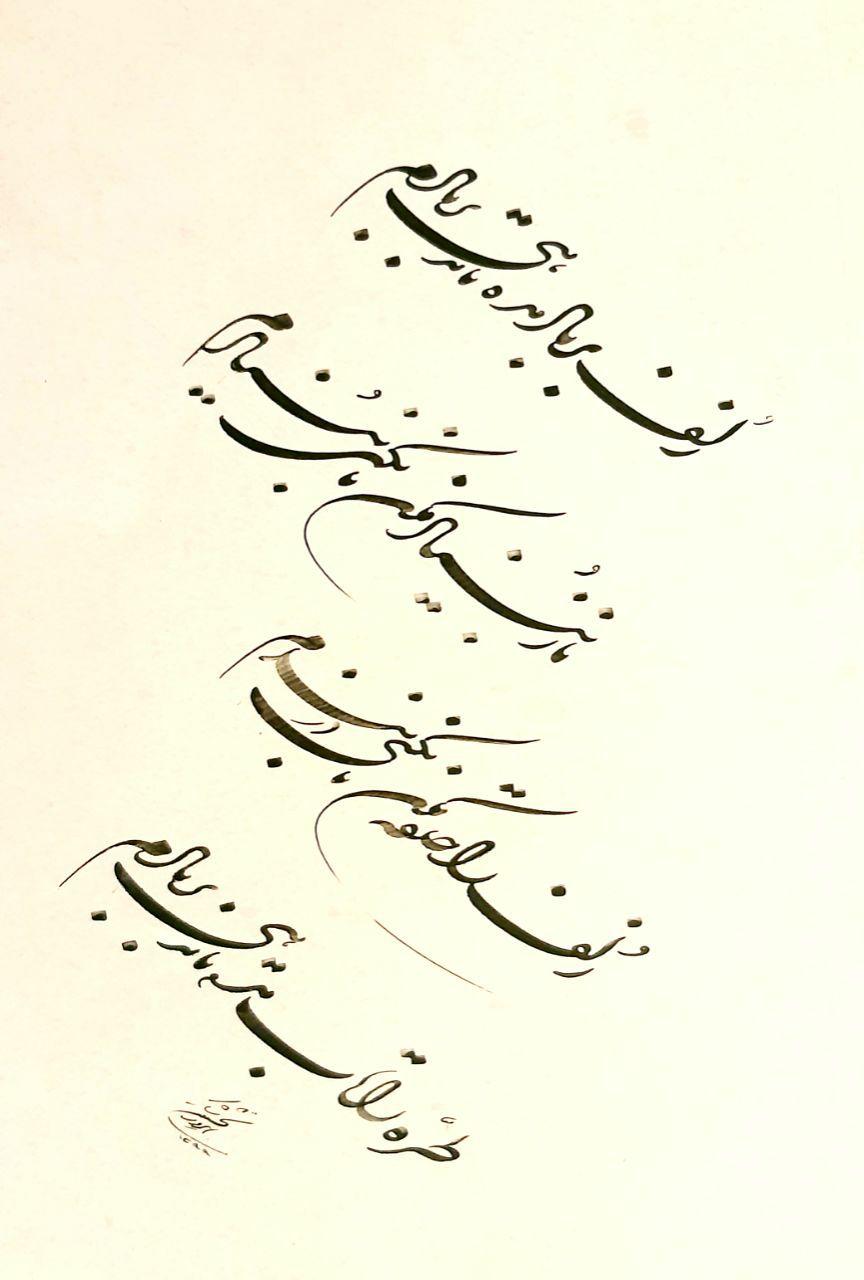 زلف بر باد مده تا ندهی بر بادم
ناز بنیاد مکن تا نکنی بنیادم
زلف را حلقه مکن تا نکنی در بندم
طرّه را تاب مده تا ندهی بر بادم